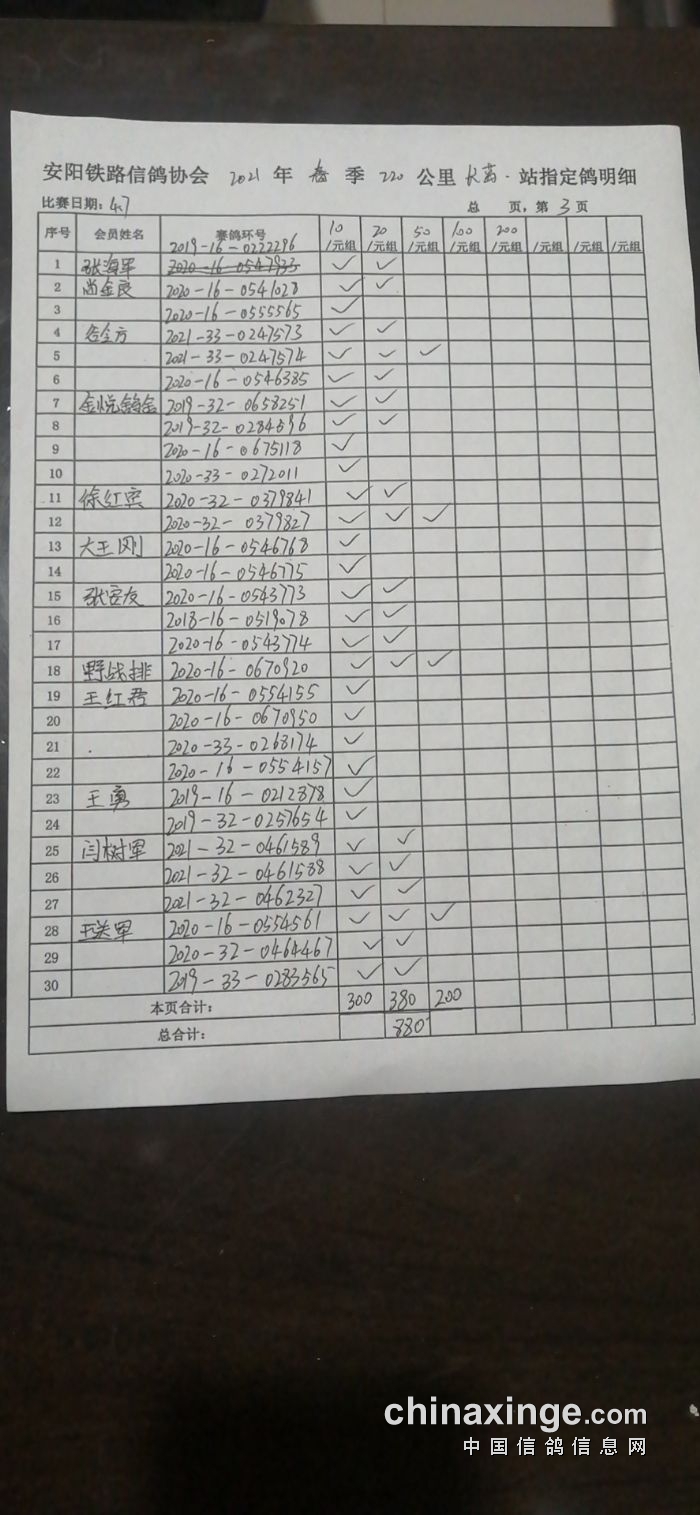 安阳铁路信鸽协会 2021 年 春 季 220 公里 长葛 站指定鸽明细
比赛日期: 4.7 总 页, 第 3 页
序号 会员姓名 赛鸽环号 10/元组 20/元组 50/元组 100/元组 200/元组 /元组 /元组 /元组
2019-16-0222296
1 张海军 2020-16-0547933 ✓ ✓
2 尚金良 2020-16-0541028 ✓ ✓
3 2020-16-0555565 ✓
4 2021-33-0247573 ✓ ✓
5 2021-33-0247574 ✓ ✓ ✓
6 2020-16-0546385 ✓ ✓
7 金悦鸽舍 2019-32-0658251 ✓ ✓
8 2019-32-0284596 ✓ ✓
9 2020-16-0675118 ✓
10 2020-33-0272011 ✓
11 徐红宾 2020-32-0379841 ✓ ✓
12 2020-32-0379827 ✓ ✓ ✓
13 大王刚 2020-16-0546768 ✓
14 2020-16-0546775 ✓
15 张安友 2020-16-0543773 ✓ ✓
16 2018-16-0519078 ✓ ✓
17 2020-16-0543774 ✓ ✓
18 野战排 2020-16-0670920 ✓ ✓ ✓
19 王红君 2020-16-0554155 ✓
20 2020-16-0670950 ✓
21 2020-33-0268174 ✓
22 2020-16-0554157 ✓
23 王勇 2019-16-0212878 ✓
24 2019-32-0257654 ✓
25 闫树军 2021-32-0461589 ✓ ✓
26 2021-32-0461588 ✓ ✓
27 2021-32-0462327 ✓ ✓
28 王关军 2020-16-0554561 ✓ ✓ ✓
29 2020-32-0464467 ✓ ✓
30 2019-33-0283565 ✓ ✓
本页合计: 300 380 200
总合计: 880
chinaxinge.com
中国信鸽信息网